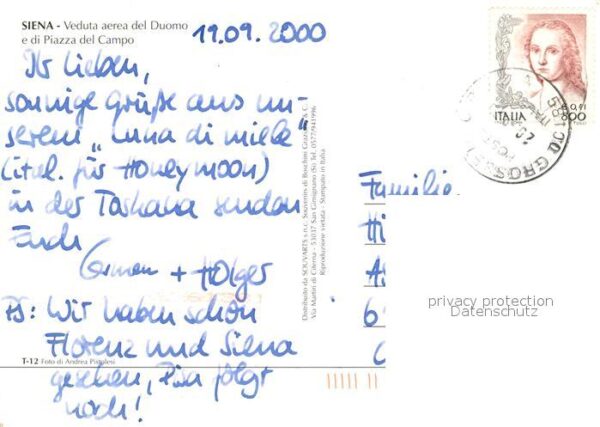 SIENA - Veduta aerea del Duomo
e di Piazza del Campo
19.09.2000
Ihr Lieben,
sonnige Grüße aus un-
serem „Luna di miele"
(ital. für Honeymoon)
in der Toskana senden
Euch
Carmen + Holger
PS: Wir haben schon
Florenz und Siena
gesehen, Pisa folgt
noch!
T-12 Foto di Andrea Pistolesi
Distribuito da SOUVARTS s.n.c. Souvenirs di Boschini Grazia & C.
Via Martiri di Citerna - 53037 San Gimignano (Si) Tel. 0577/941996
Riproduzione vietata - Stampato in Italia
ITALIA
€ 0,41
800
GROSSETO
Familie
Hi
A
6
privacy protection
Datenschutz